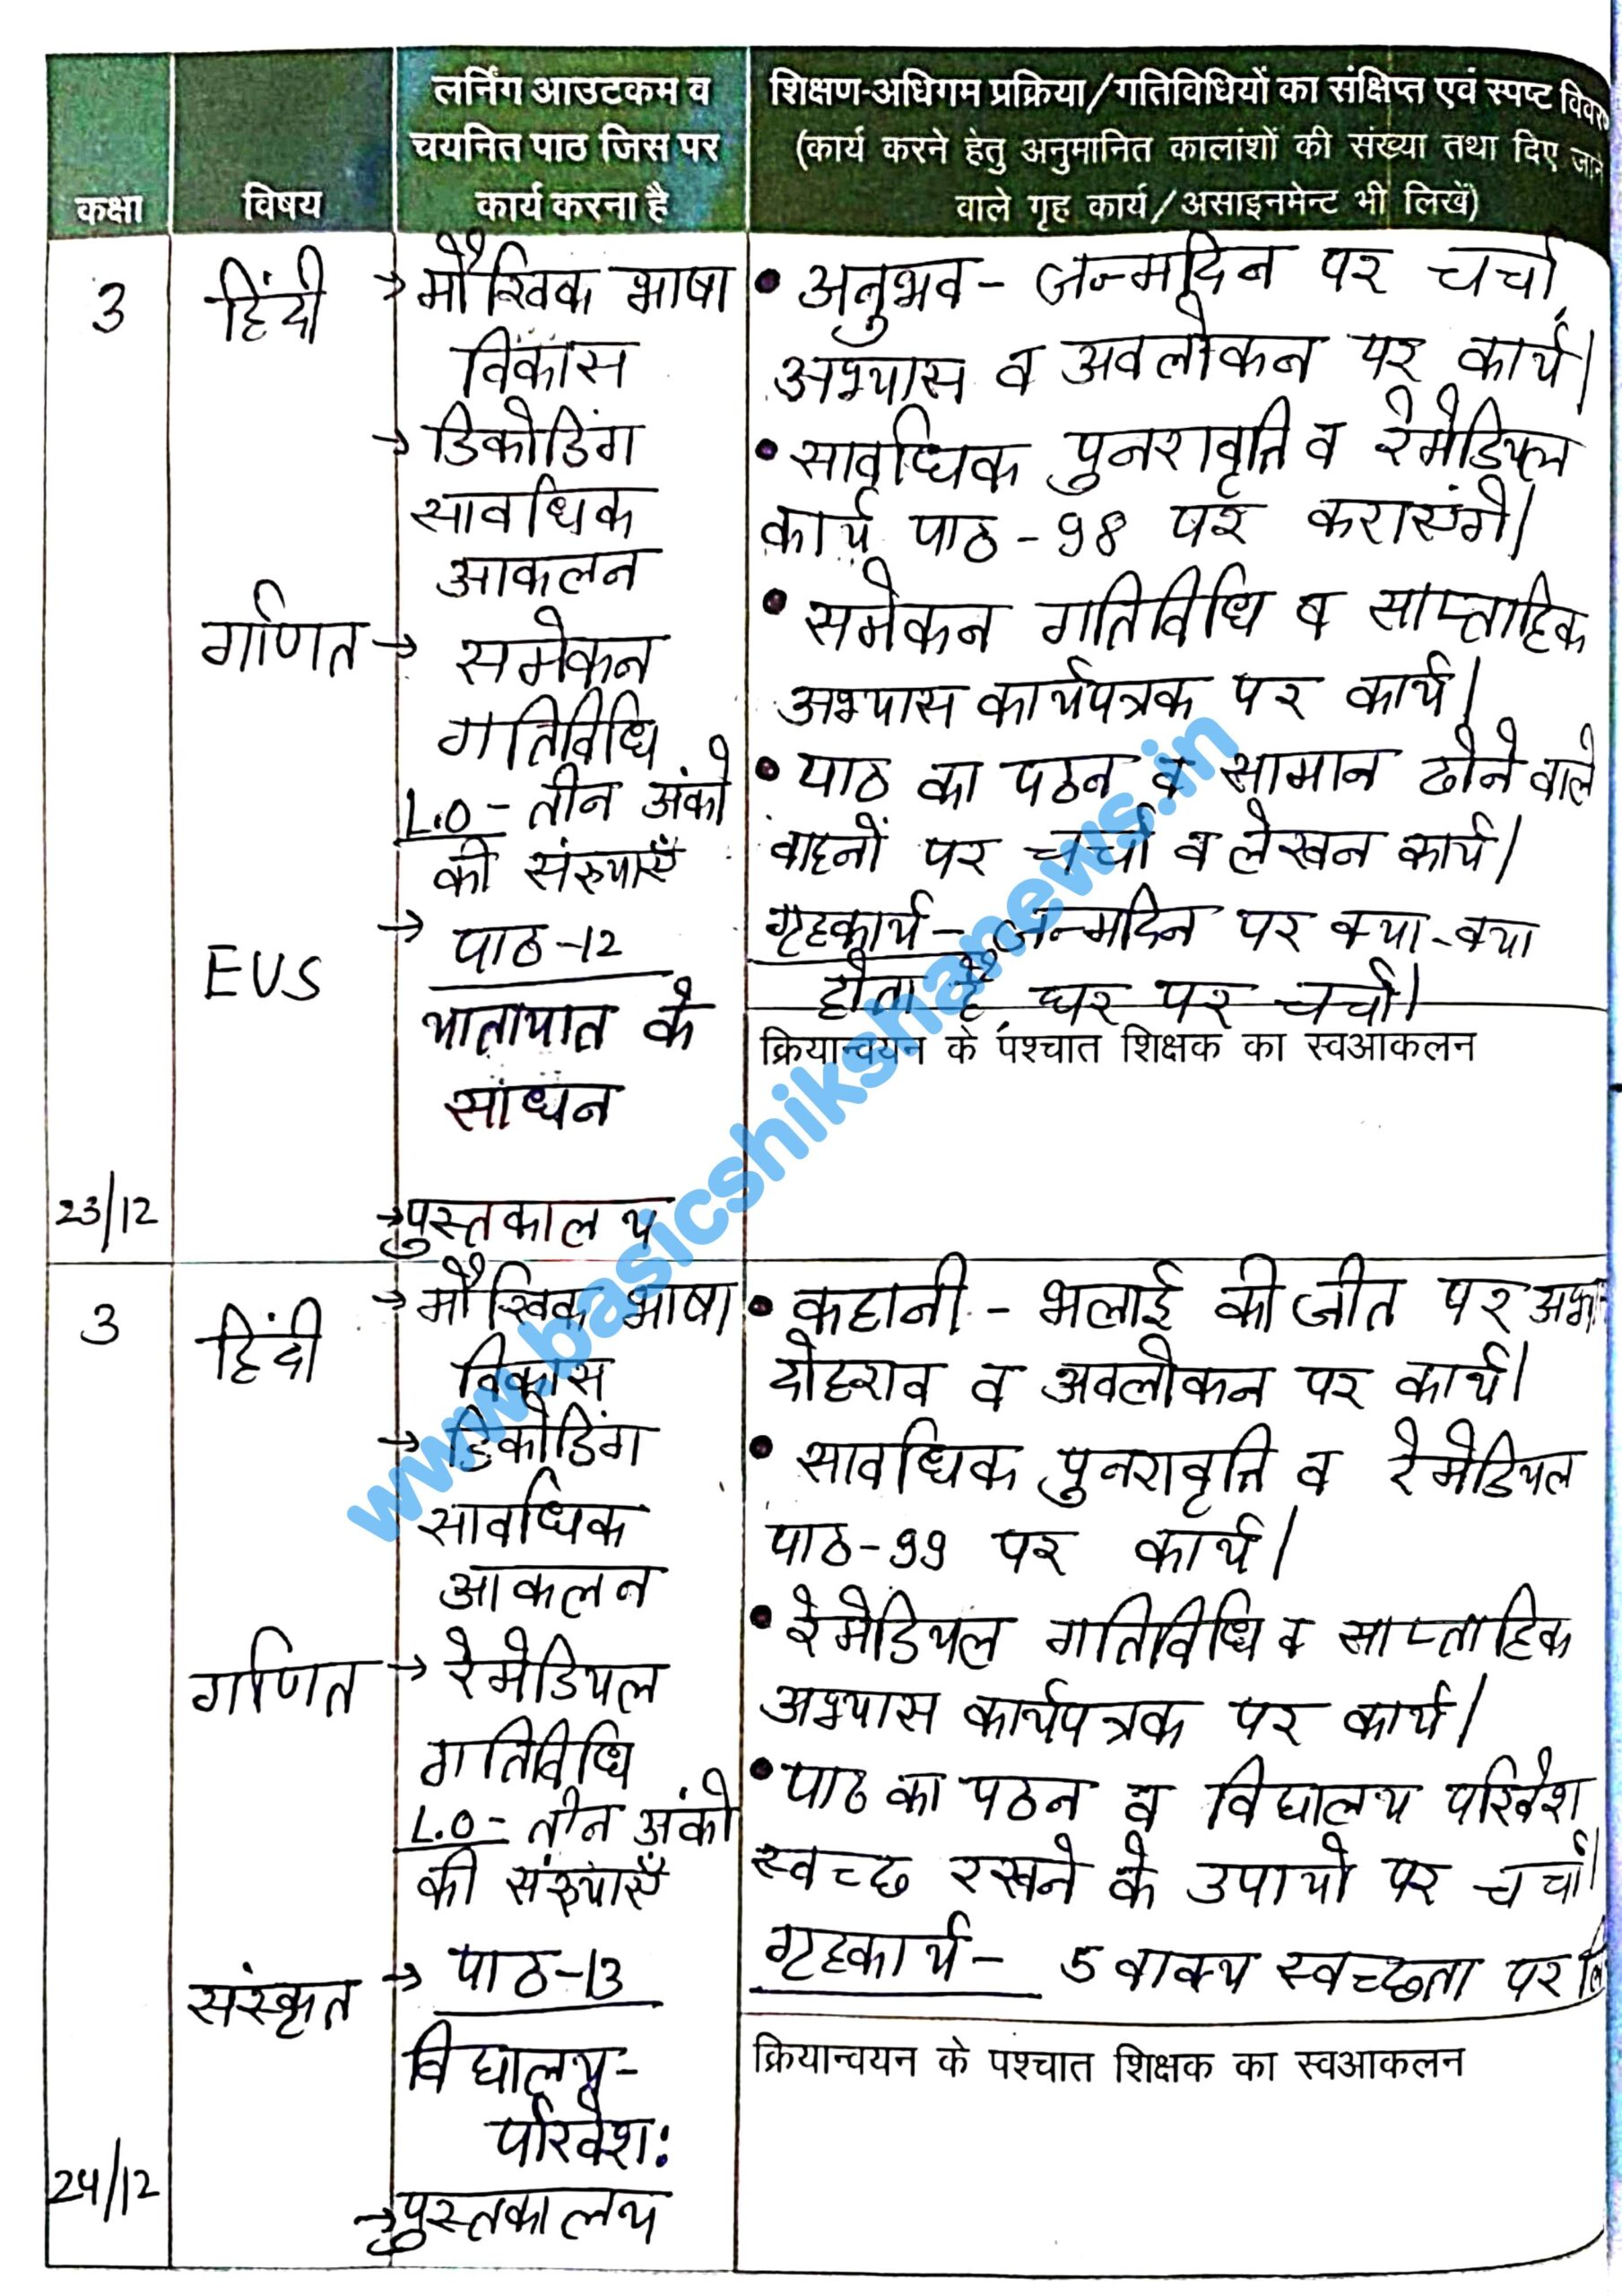 लर्निंग आउटकम व
चयनित पाठ जिस पर
कार्य करना है
शिक्षण-अधिगम प्रक्रिया/गतिविधियों का संक्षिप्त एवं स्पष्ट
(कार्य करने हेतु अनुमानित कालांशों की संख्या तथा दिए
वाले गृह कार्य/असाइनमेन्ट भी लिखें)
कक्षा
विषय
3
हिंदी
→ मौखिक भाषा
विकास
→ डिकोडिंग
सावधिक
आकलन
गणित → समेकन
गतिविधि
L.O - तीन अंको
की संख्याएँ
EVS
→ पाठ-12
यातायात के
साधन
23/12
→ पुस्तकालय
• अनुभव - जन्मदिन पर चर्चा,
अभ्यास व अवलोकन पर कार्य।
• सावधिक पुनरावृत्ति व रेमेडियल
कार्य पाठ - 98 पर कराएंगे।
• समेकन गतिविधि व साप्ताहिक
अभ्यास कार्यपत्रक पर कार्य।
• पाठ का पठन व सामान ढोने वाले
वाहनों पर चर्चा व लेखन कार्य।
गृहकार्य - जन्मदिन पर क्या-क्या
होता है, घर पर चर्चा।
क्रियान्वयन के पश्चात शिक्षक का स्वआकलन
3
हिंदी
→ मौखिक भाषा
विकास
→ डिकोडिंग
सावधिक
आकलन
गणित → रेमेडियल
गतिविधि
L.O - तीन अंको
की संख्याएँ
संस्कृत → पाठ-13
विद्यालय-
परिवेश:
24/12
→ पुस्तकालय
• कहानी - भलाई की जीत पर
दोहराव व अवलोकन पर कार्य।
• सावधिक पुनरावृत्ति व रेमेडियल
पाठ-99 पर कार्य।
• रेमेडियल गतिविधि व साप्ताहिक
अभ्यास कार्यपत्रक पर कार्य।
• पाठ का पठन व विद्यालय परिवेश
स्वच्छ रखने के उपायो पर चर्चा।
गृहकार्य - 5 वाक्य स्वच्छता पर
क्रियान्वयन के पश्चात शिक्षक का स्वआकलन
www.basicshikshanews.in